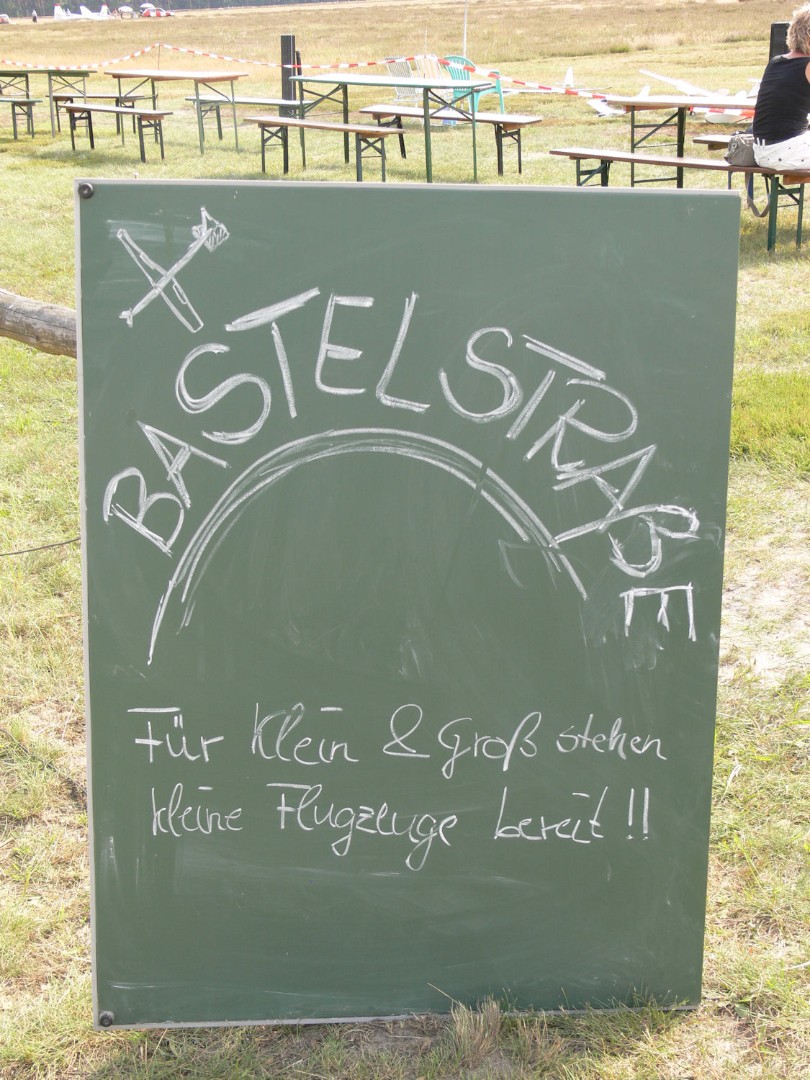 BASTELSTRAßE
Für Klein & Groß stehen
kleine Flugzeuge bereit !!